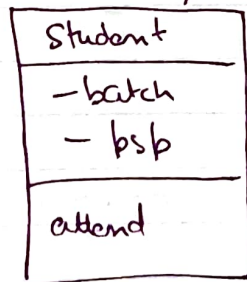 Student
- batch
- psp
attend